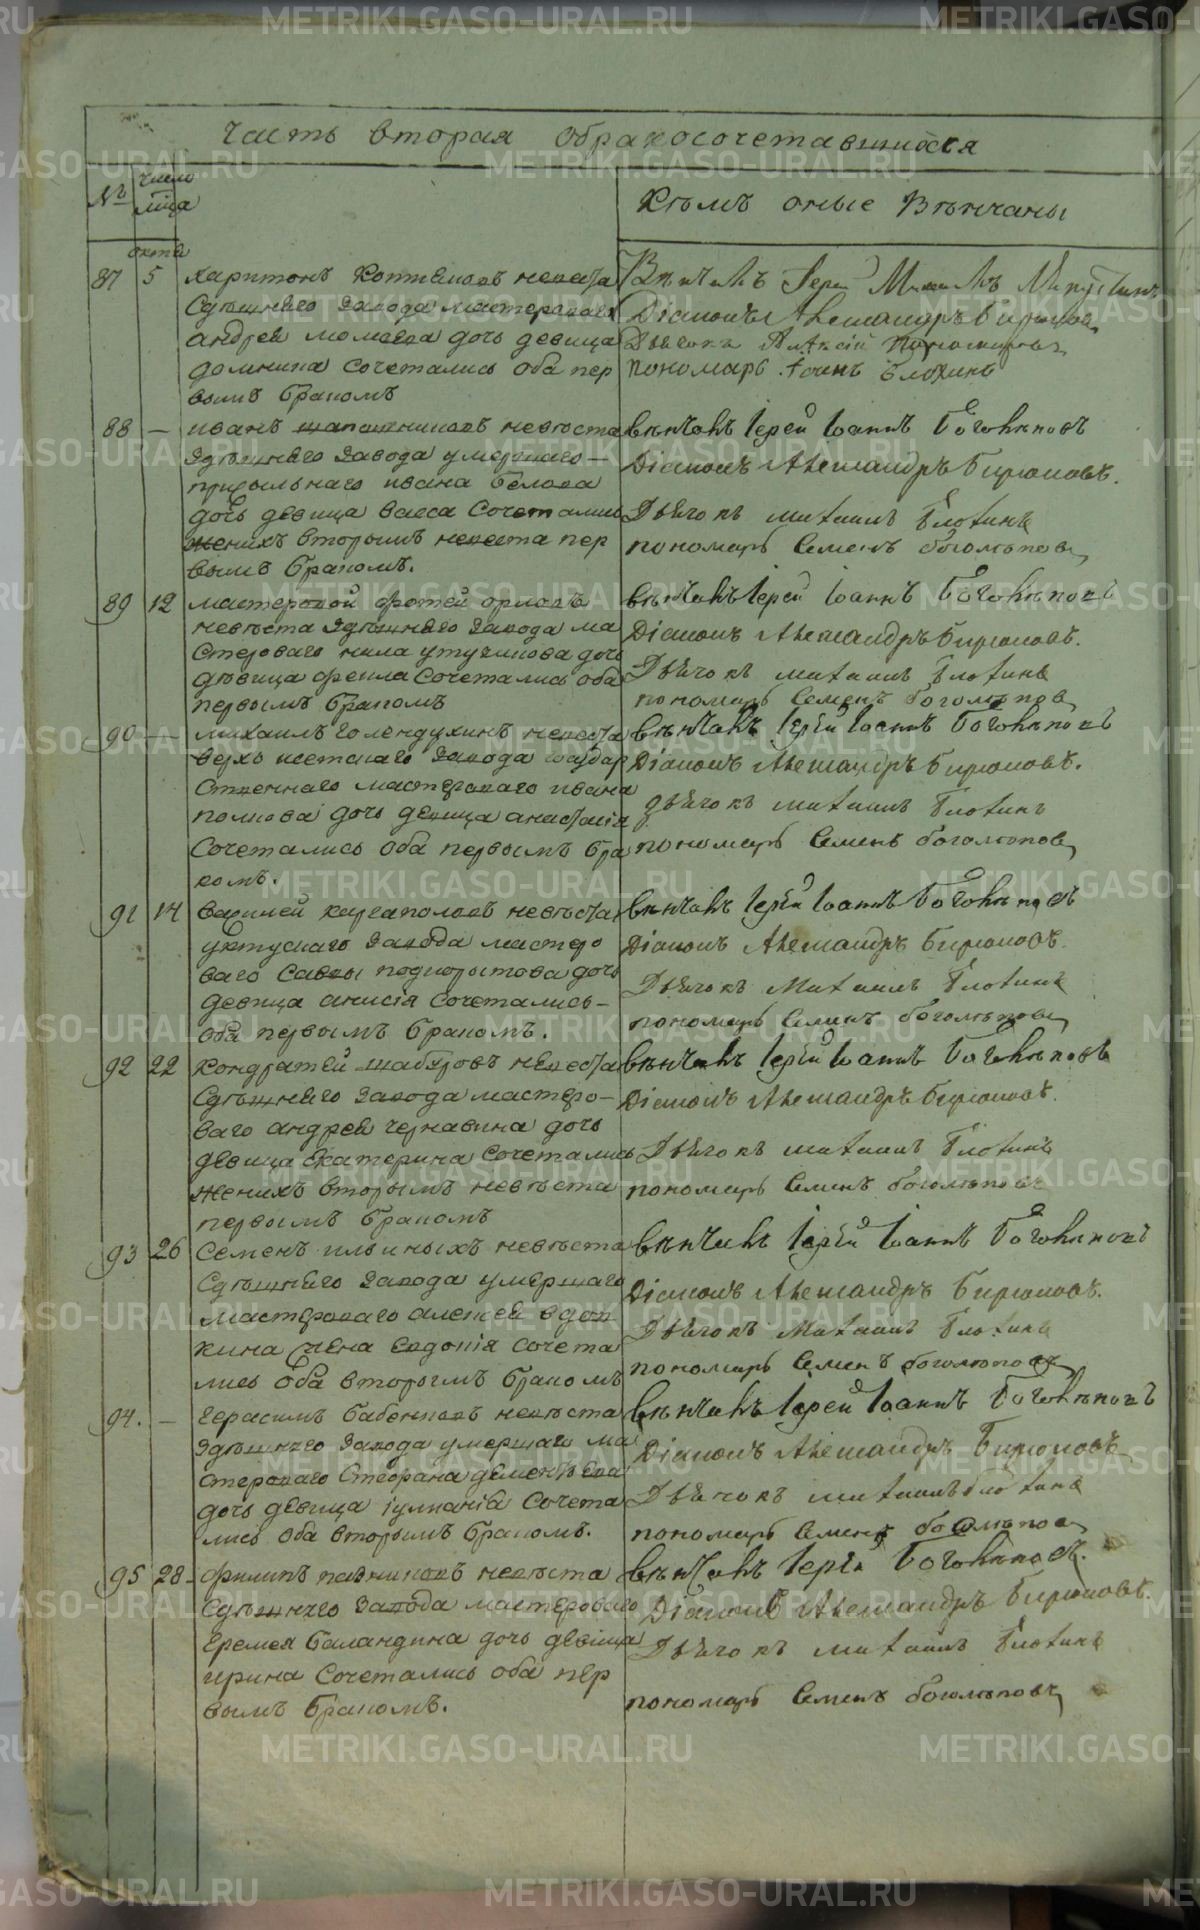 Часть вторая обракосочетавшихся
№ число мца
Кѣмъ оные Вѣнчаны
окта
87 5 харитонъ невеста
Сдѣшнѣго Завода мастероваго
андрея дочь девица
домнина Сочетались оба пер
вымъ бракомъ
Вѣнчалъ Іерей Михаилъ
Діаконъ Александръ Бирюковъ
Дьячокъ Алѣксій Пономаревъ
Пономарь
88 — иванъ шапошниковъ невѣста
Здѣшнѣго Завода умершаго —
ивана белова
дочь девица васса Сочетались
женихъ вторымъ невеста пер
вымъ бракомъ.
вѣнчалъ Іерей Іоаннъ Боголѣповъ
Діаконъ Александръ Бирюковъ.
Дьячокъ михаилъ Блохинъ
пономарь Семенъ боголюповъ
89 12 мастеровой фотей орловъ
невѣста Здѣшнѣго Завода ма
Стероваго нила утуганова дочь
дѣвица фекла Сочетались оба
первымъ бракомъ
вѣнчалъ Іерей Іоаннъ Боголѣповъ
Діаконъ Александръ Бирюковъ.
Дьячокъ михаилъ Блохинъ
пономарь Семенъ боголюпов
90 — михаилъ голендухинъ невеста
верхъ исетскаго Завода
мастероваго ивана
попкова дочь девица анастасія
Сочетались оба первымъ бра
комъ.
вѣнчалъ Іерей Іоаннъ Боголѣповъ
Діаконъ Александръ Бирюковъ.
дьячокъ михаилъ Блохинъ
пономарь Семенъ боголюпов
91 14 василей каргаполовъ невѣста
уктускаго Завода мастеро
ваго Саввы подкорытова дочь
девица анисія Сочетались —
оба первымъ бракомъ.
вѣнчалъ Іерей Іоаннъ Боголѣповъ
Діаконъ Александръ Бирюковъ.
Дьячокъ михаилъ Блохинъ
пономарь Семенъ боголюпов
92 22 кондратей шабуровъ невеста
Сдѣшнѣго Завода мастеро —
ваго андрей чернавина дочь
девица Екатерина Сочетались
женихъ вторымъ невѣста
первымъ бракомъ
вѣнчалъ Іерей Іоаннъ Боголѣповъ
Діаконъ Александръ Бирюковъ.
Дьячокъ михаилъ Блохинъ
пономарь Семенъ боголюповъ
93 26 Семенъ ильиныхъ невѣста
Сдѣшнѣго Завода умершаго
мастероваго алексея вдов
кина жена Евдокія Сочета
лись оба вторымъ бракомъ
вѣнчалъ Іерей Іоаннъ Боголѣповъ
Діаконъ Александръ Бирюковъ.
Дьячокъ михаилъ Блохинъ
пономарь Семенъ боголюповъ
94. — герасимъ бабенковъ невѣста
Здѣшнѣго Завода умершаго ма
стероваго Стефана дементьева
дочь девица іулианія Сочета
лись оба вторымъ бракомъ.
вѣнчалъ Іерей Іоаннъ Боголѣповъ
Діаконъ Александръ Бирюковъ
Дьячокъ михаилъ блохинъ
пономарь Семенъ боголюпов
95 28 филипъ невѣста
Сдѣшнѣго Завода мастероваго
Еремея баландина дочь девица
ирина Сочетались оба пер
вымъ бракомъ.
вѣнчалъ Іерей Боголѣповъ.
Діаконъ Александръ Бирюковъ.
Дьячокъ михаилъ Блохинъ
пономарь Семенъ боголюповъ
METRIKI.GASO-URAL.RU